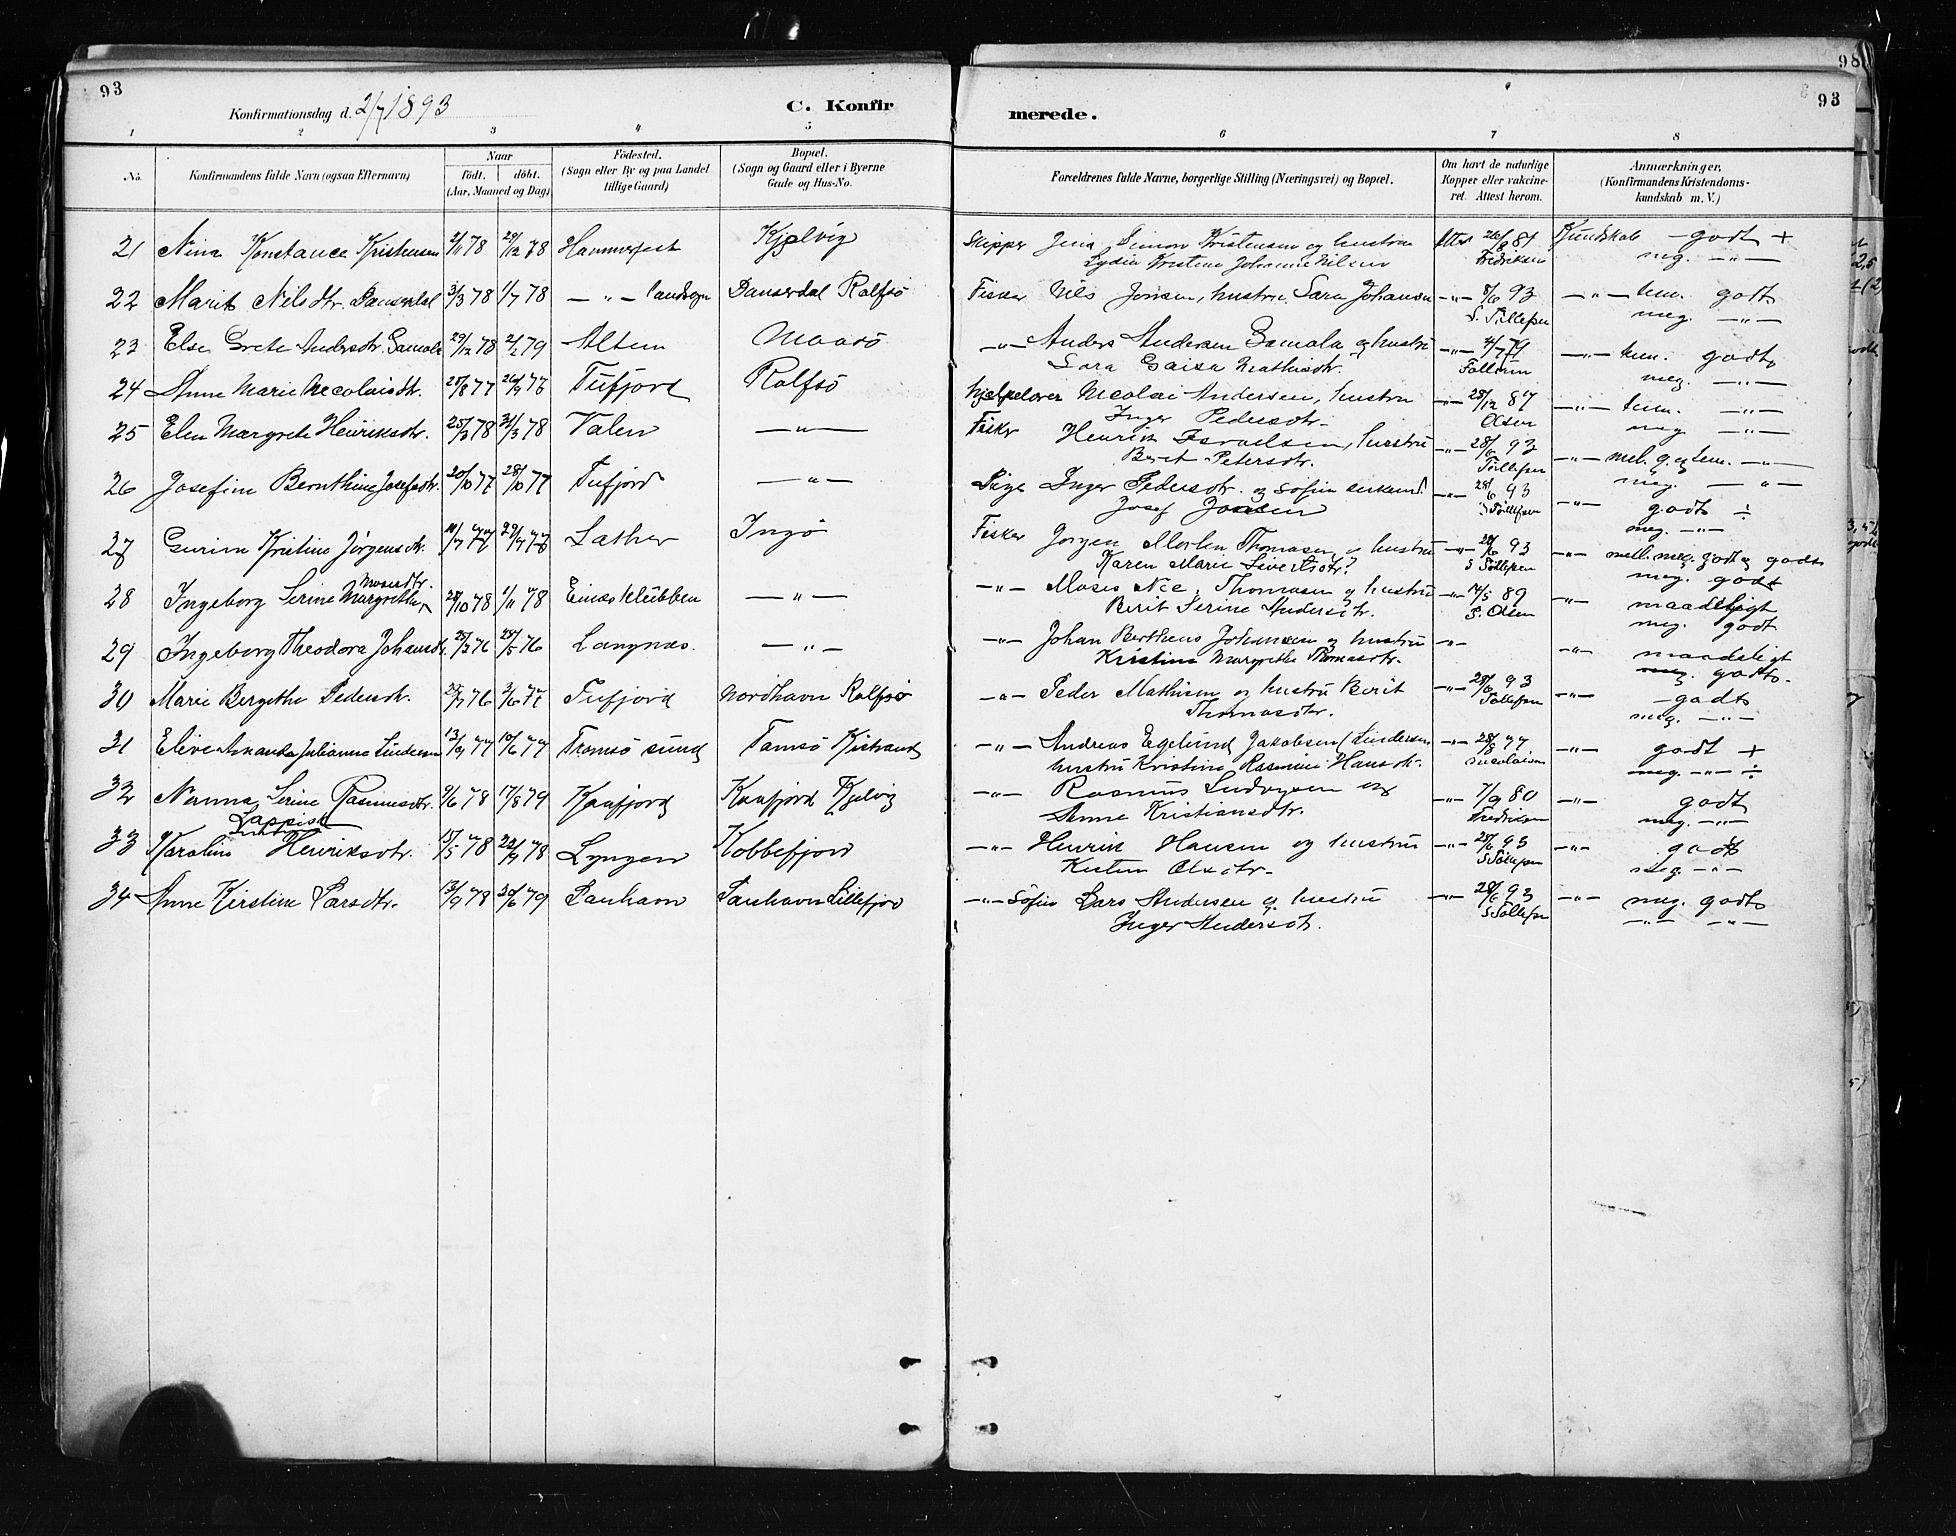 93
Konfirmationsdag d. 2/7 1893
C. Konfir
merede.
93
98
1 2 3 4 5 6 7 8
No.
Konfirmandens fulde Navn (ogsaa Efternavn)
Naar
födt. döbt.
(Aar, Maaned og Dag)
Födested.
(Sogn eller By og paa Landet
tillige Gaard)
Bopæl.
(Sogn og Gaard eller i Byerne
Gade og Hus-No.
Forældrenes fulde Navne, borgerlige Stilling (Næringsvei) og Bopæl.
Om havt de naturlige
Kopper eller vakcine-
ret. Attest herom.
Anmærkninger.
(Konfirmandens Kristendoms-
kundskab m. V.)
21 Nina Konstance Kristensen 2/11 78 29/12 78 Hammerfest Kjelvig Skipper Jens Simon Kristensen og hustru Attest 26/8 81 Kundskab godt +
Lydia Kristine Johanne Nilsen Fredriksen meg. — " —
22 Marit Nilsdtr. Danserdal 31/3 78 1/7 78 — " — landsogn Danserdal Rolfsö Fisker Nils Jonsen, hustru Sara Johansen — " — 8/6 93 — " — tem. godt
S. Tillefsen meg. — " —
23 Else Grete Andersdtr. Samola 29/12 78 2/2 79 Alten Maasö — " — Anders Andersen Samola og hustru — " — 4/7 79 — " — tem. godt
Sara Gaisa Mathisdtr. Follum meg. — " —
24 Anne Marie Nicolaisdtr. 25/8 77 Tufjord Rolfsö Hjelpelærer Nicolai Andersen, hustru — " — 28/12 87 — " — tem. — " —
Inger Pedersdtr. Olsen meg — " —
25 Elen Margrete Henriksdtr. 25/3 78 31/3 78 Valen — " — Fisker Henrik Israelsen, hustru — " — 28/6 93 — " — mel. g. og tem. — " —
Berit Petersdtr. Tillefsen meg. — " —
26 Josefine Bernthine Josefsdtr. 20/10 77 28/10 77 Tufjord — " — Pige Inger Pedersdtr. og Söfin 28/6 93 — " — godt ÷
Josef Jonsen S Tillefsen meg. — " —
27 Gurine Kristine Jörgensdtr. Latter Ingö Fisker Jörgen Morten Thomasen og hustru — " — 28/6 93 — " — mell. meg. godt og godt
Karen Marie Sivertsdtr? S Tillefsen meg. godt
28 Ingeborg Serine Margrethe Mosesdtr. 28/10 78 1/11 78 Einasklubben — " — — " — Moses Nic. Thomasen og hustru — " — 14/5 89 — " — maadeligt
Berit Serine Andersdtr. S. Olsen meg. godt
29 Ingeborg Theodora Johansdtr. 25/3 76 25/5 76 Langnæs. — " — — " — Johan Bertheus Johansen og hustru — " — — " — maadeligt
Kirstine Margrethe Thomasdtr. meg. godt.
30 Marie Bergithe Pedersdtr. Tufjord Nordhavn Rolfsö — " — Peder Mathisen og hustru Berit — " — 28/6 93 — " — godt
Thomasdtr. Tillefsen meg. — " —
31 Elive Amanda Julianne Lindersen 13/9 77 Tromsö sund Tamsö Kistrand — " — Andreas Egelund Jakobsen (Lindersen — " — 28/8 77 — " — godt +
hustru Kristine Rasmine Hansdtr. Nicolaisen meg. — " — ÷
32 Nanna Serine Rasmusdtr. 9/6 78 17/8 79 Kaafjord Kaafjord Kjelvig — " — Rasmus Ludvigsen og — " — 7/9 80 — " — godt
Anne Kristiansdtr. Fredriksen meg. — " —
Lappisk
33 Karoline Henriksdtr. 15/5 78 22/9 78 Lyngen Kobbefjord — " — Henrik Hansen og hustru — " — 28/6 93 — " — godt
Kirsten Olsdtr. S Tillefsen meg. — " —
34 Anne Kirstine Larsdtr. 13/9 78 30/6 79 Laxhavn Laxhavn Lillefjord — " — Söfin Lars Andersen og hustru — " — 28/6 93 — " — meg. godt
Inger Andersdtr. S Tillefsen — " — — " —